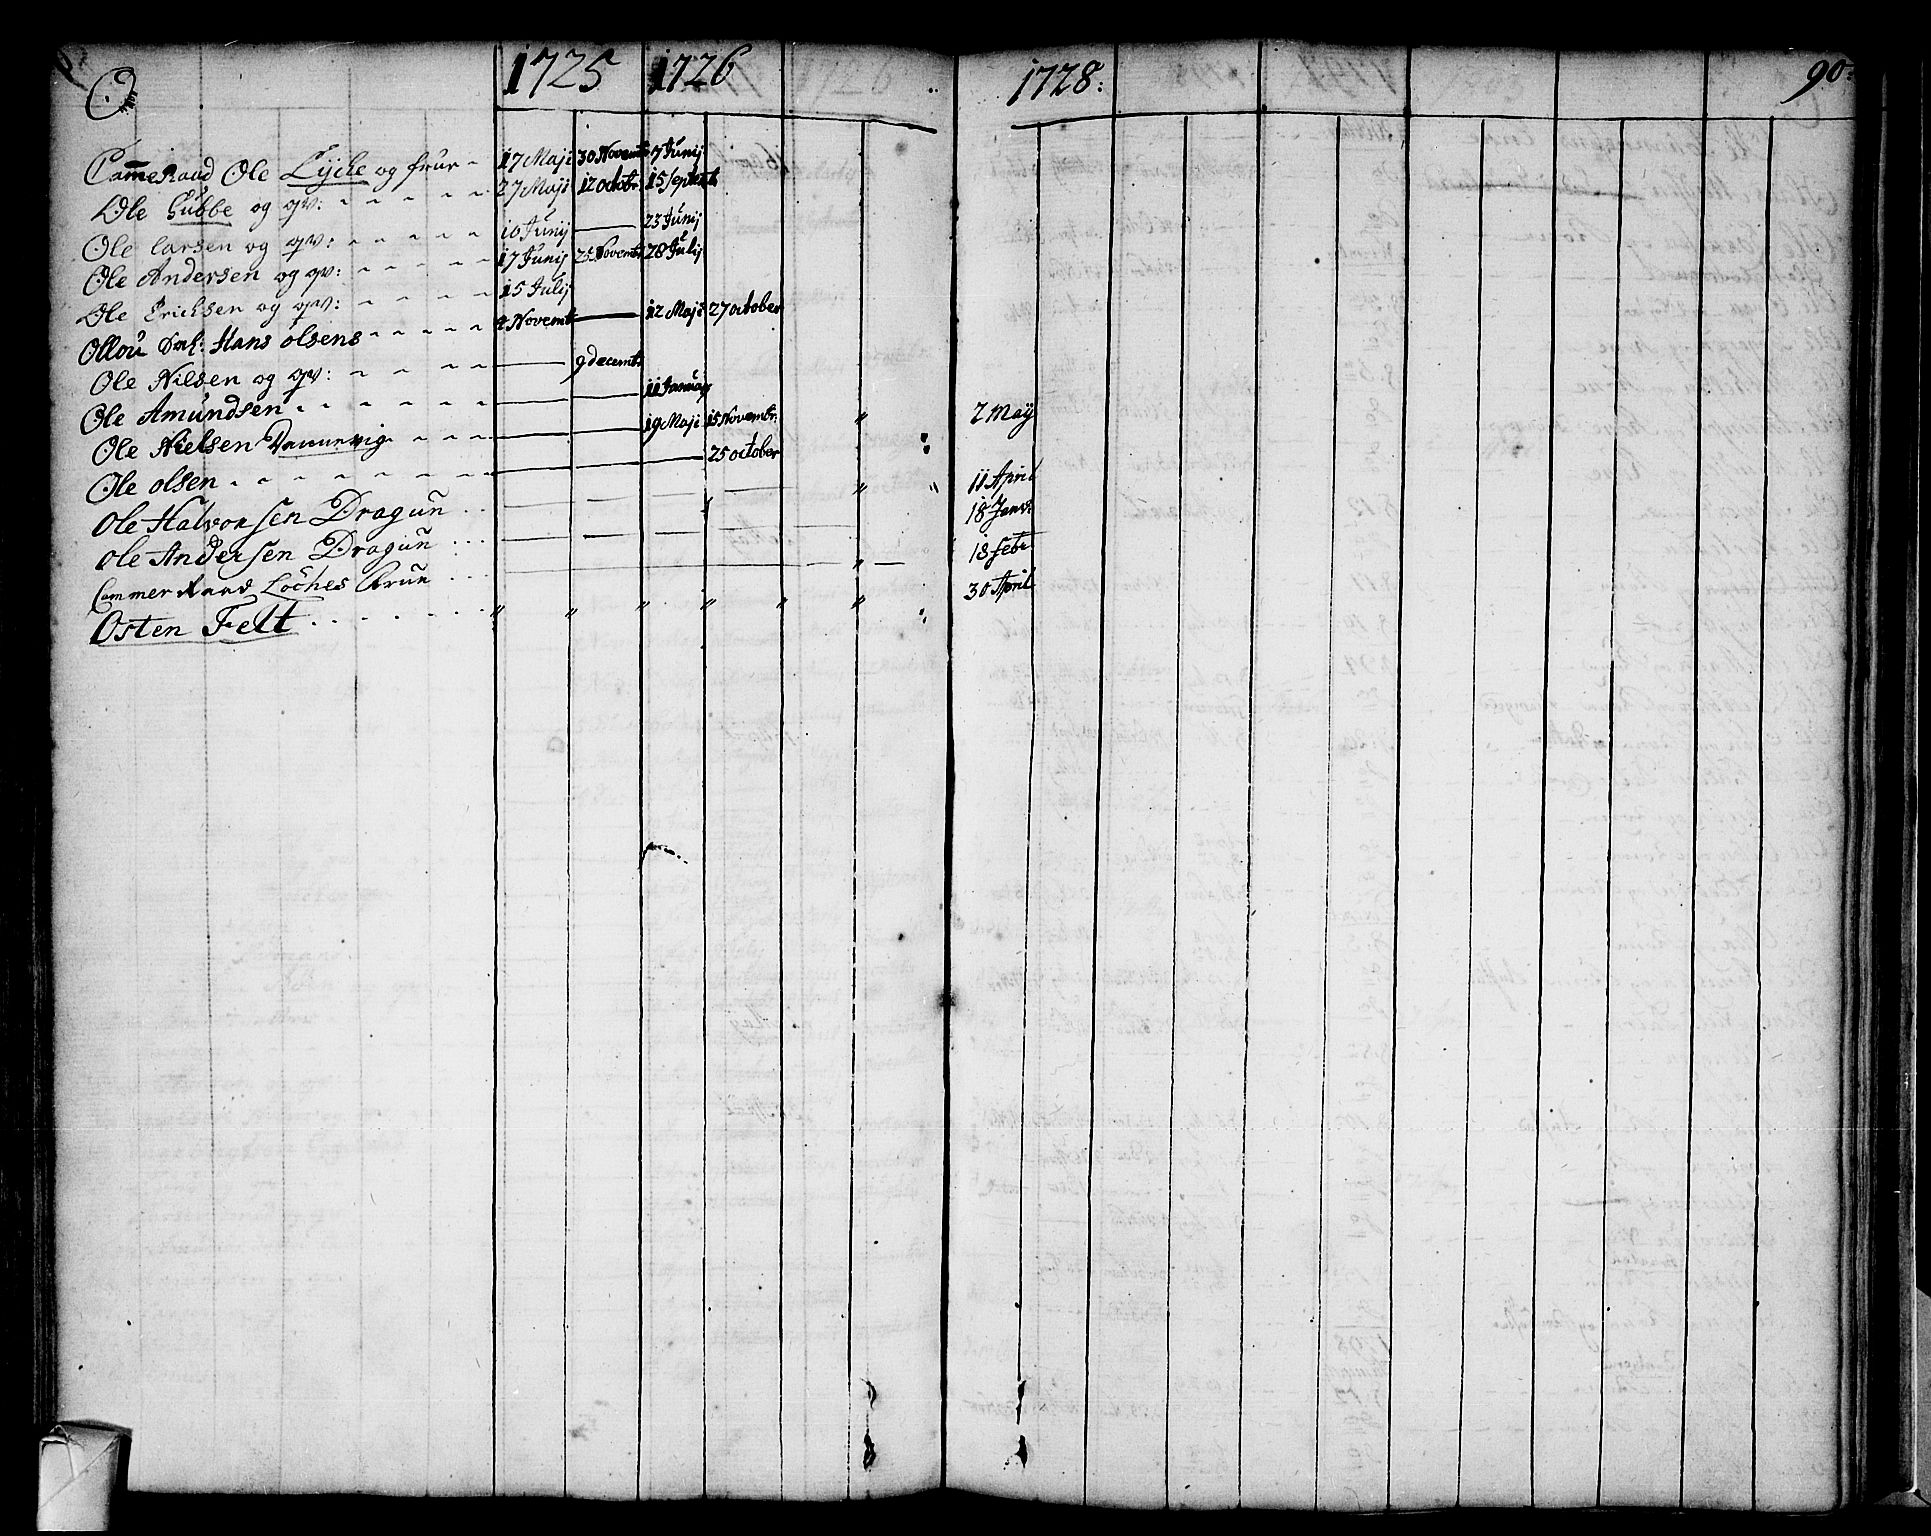 O 1725 1726 1728: 90:
Cammeraad Ole Lÿche og frue - 17 Maji 30 Novemb 7 Junij
Ole Lubbe og qv: 27 Maji 12 octobr 15 Septemb
Ole Larsen og qv: 10 Junij — 23 Junij
Ole Andersen og qv: 17 Junij 25 Novemb 28 Julij
Ole Ericksen og qv: 15 Julij
Ollou Hans olsens 4 Novemb — 12 Maji 27 october
Ole Nilsen og qv: — 9 decemb
Ole Amundsen — 11 Januarij
Ole Nielsen — 19 Maji 15 Novembr: " 2 Maÿ
Ole olsen — 25 october
Ole Halvorsen Dragun — " 11 April
Ole Andersen Dragun — 18 Janv:
Commerraad Loches — " 18 febr
Osten Felt " " " " " " 30 April